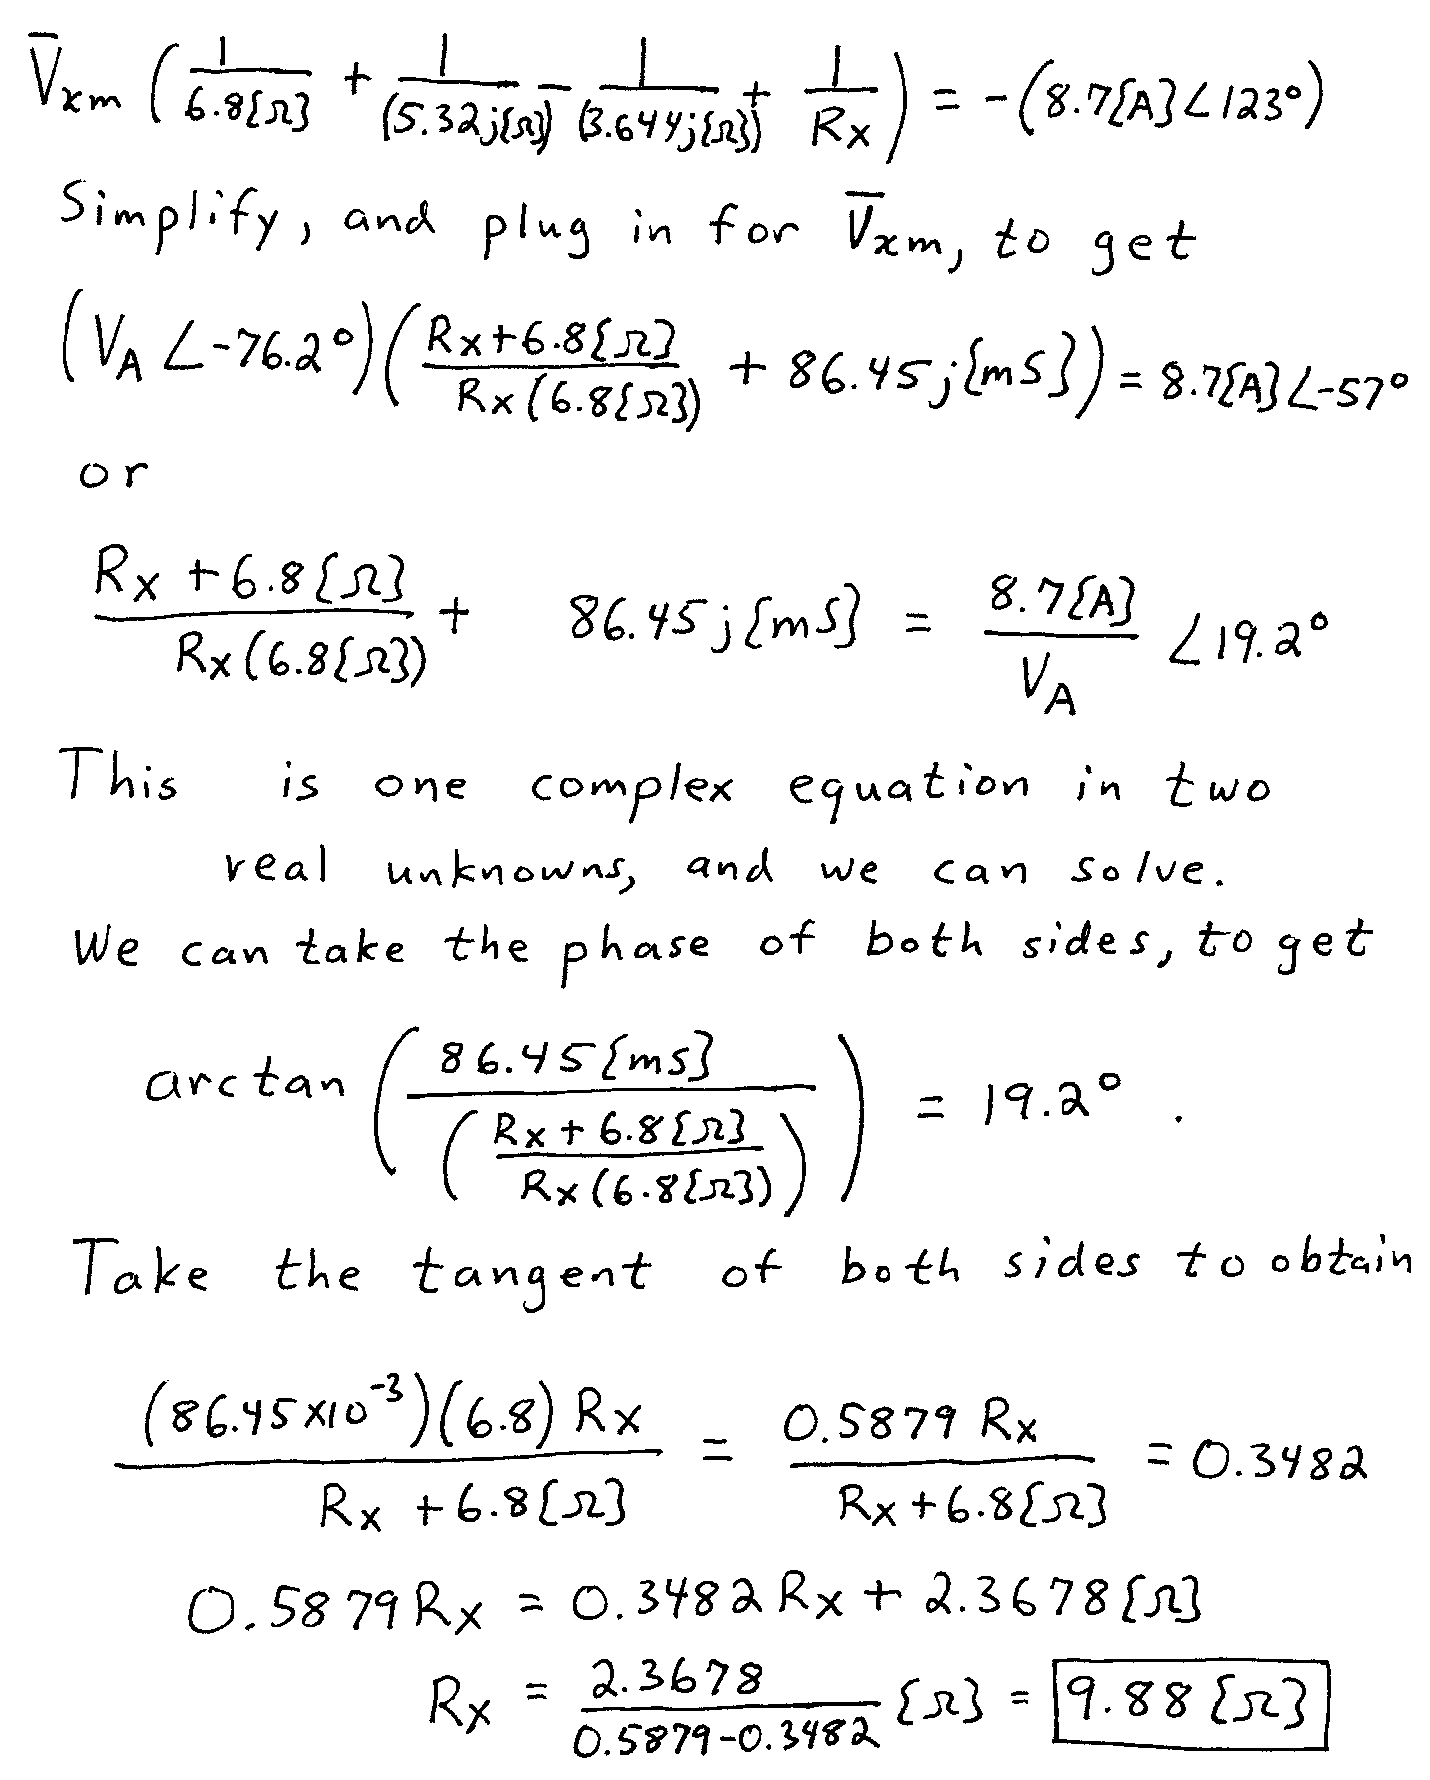 V̄xm (1/6.8[Ω] + 1/(5.32j[Ω]) − 1/(3.644j[Ω]) + 1/Rx) = −(8.7[A]∠123°)
Simplify, and plug in for V̄xm, to get
(VA ∠-76.2°)((Rx+6.8[Ω])/(Rx(6.8[Ω])) + 86.45j[mS]) = 8.7[A]∠-57°
or
(Rx+6.8[Ω])/(Rx(6.8[Ω])) + 86.45j[mS] = 8.7[A]/VA ∠19.2°
This is one complex equation in two
real unknowns, and we can solve.
We can take the phase of both sides, to get
arctan(86.45[mS]/((Rx+6.8[Ω])/(Rx(6.8[Ω])))) = 19.2°.
Take the tangent of both sides to obtain
(86.45x10⁻³)(6.8)Rx/(Rx+6.8[Ω]) = 0.5879 Rx/(Rx+6.8[Ω]) = 0.3482
0.5879Rx = 0.3482Rx + 2.3678[Ω]
Rx = 2.3678/(0.5879-0.3482) [Ω] = 9.88[Ω]